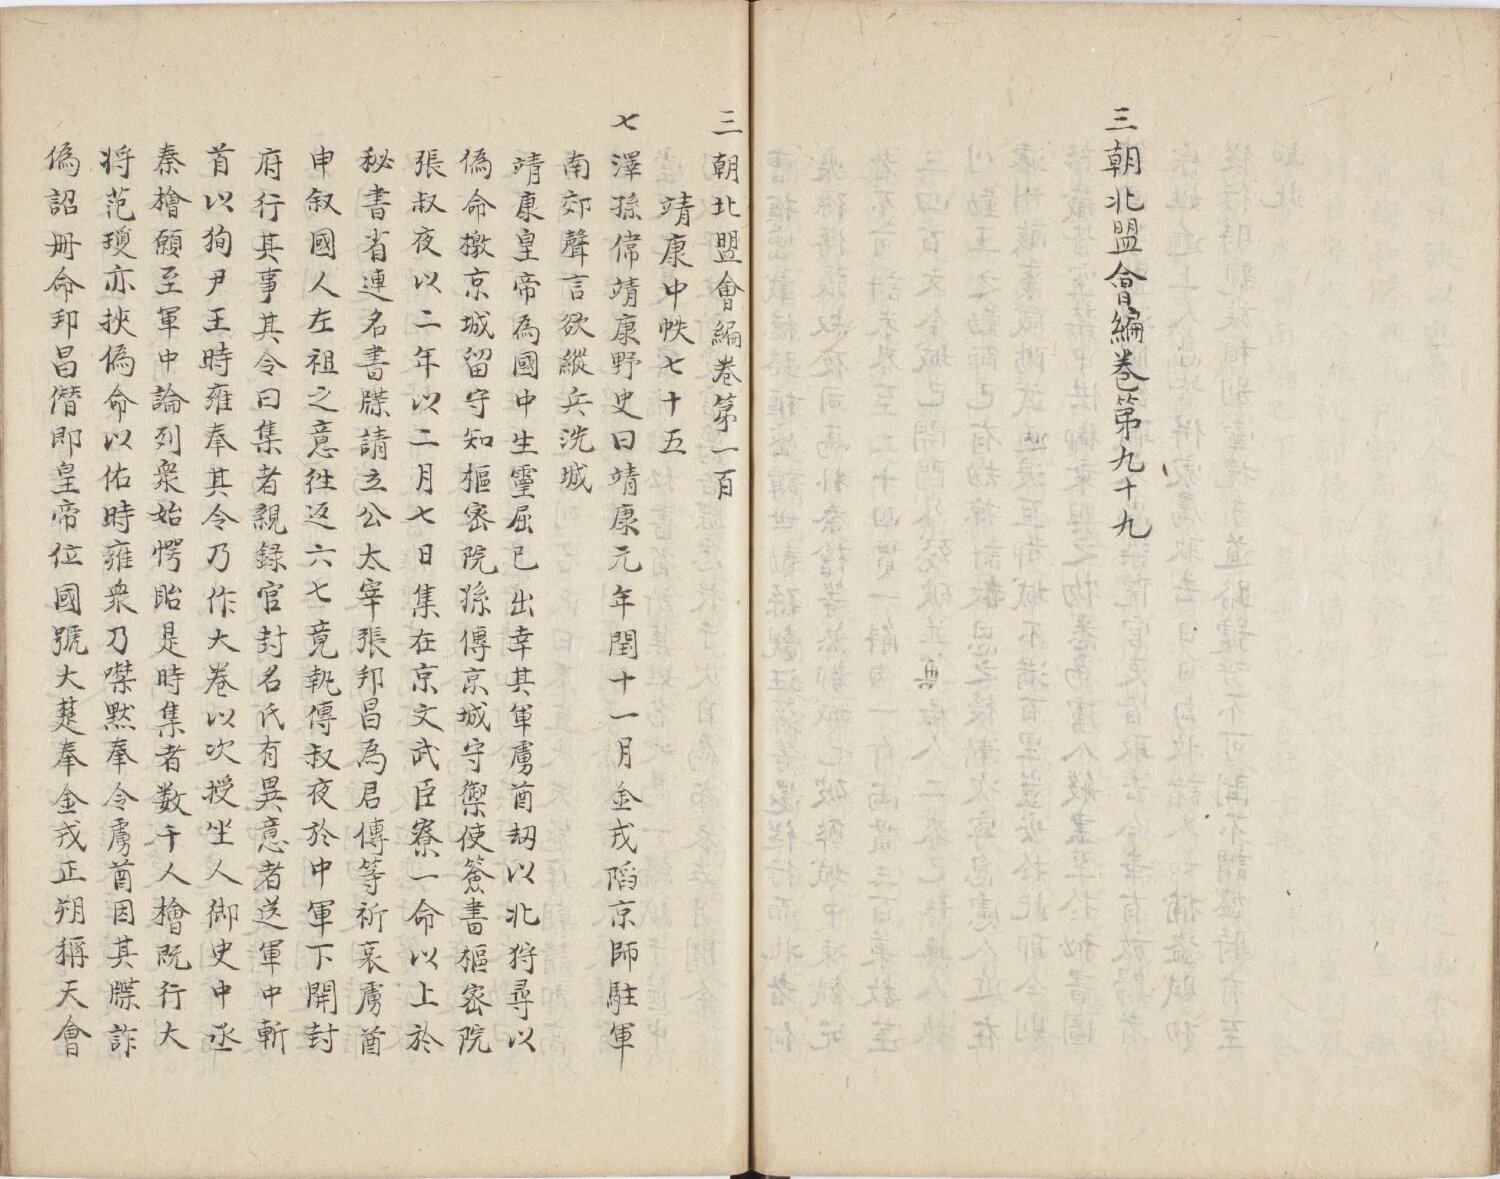 三朝北盟會編卷第九十九
三朝北盟會編卷第一百
靖康中帙七十五
七澤孫偉靖康野史曰靖康元年閏十一月金戎䧟京師駐軍
南郊聲言欲縱兵洗城
靖康皇帝為國中生靈屈已出幸其軍虜酋刼以北狩尋以
偽命檄京城留守知樞密院孫傅京城守禦使簽書樞密院
張叔夜以二年以二月七日集在京文武臣寮一命以上於
秘書省連名書牒請立公太宰張邦昌為君傅等祈哀虜酋
申叙國人左祖之意徃返六七竟執傅叔夜於中軍下開封
府行其事其令曰集者親録官封名氏有異意者送軍中斬
首以狥尹王時雍奉其令乃作大卷以次授坐人御史中丞
秦檜願至軍中論列衆始愕眙是時集者数千人檜既行大
将范瓊亦挾偽命以佑時雍衆乃噤黙奉令虜酋因其牒詐
偽詔册命邦昌僭即皇帝位國號大楚奉金戎正朔稱天會